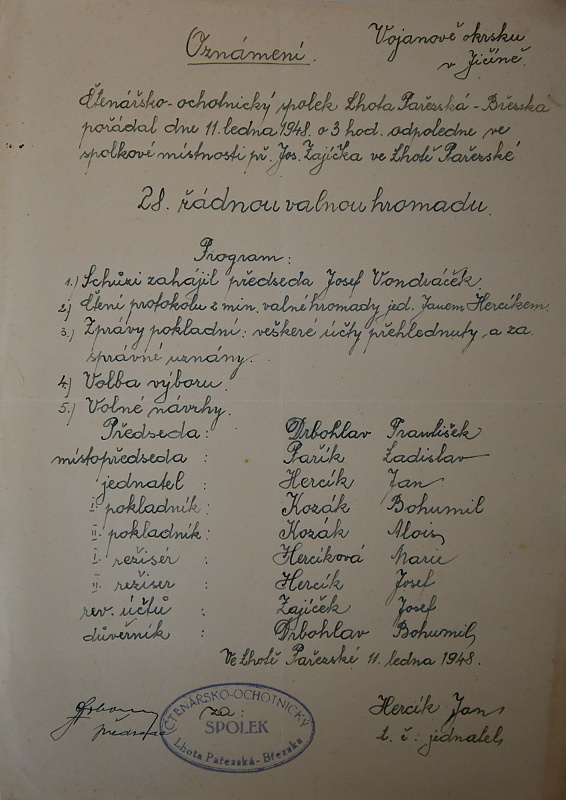 Oznámení.
Vojanově okrsku
v Jičíně.
Čtenářsko-ochotnický spolek Lhota Pařezská - Březská
pořádal dne 11. ledna 1948 o 3 hod. odpoledne ve
spolkové místnosti př. Jos. Zajíčka ve Lhotě Pařezské
28. řádnou valnou hromadu.
Program:
1.) Schůzi zahájil předseda Josef Vondráček.
2.) Čtení protokolu z min. valné hromady jed. Janem Hercíkem.
3.) Zprávy pokladní: veškeré účty přehlednuty, a za
správné uznány.
4.) Volba výboru.
5.) Volné návrhy.
Předseda: Drbohlav František
místopředseda: Pařík Ladislav
jednatel: Hercík Jan
I. pokladník: Kozák Bohumil
II. pokladník: Kozák Alois
I. režisér: Hercíková Marie
II. režiser: Hercík Josef
rev. účtů: Zajíček Josef
důvěrník: Drbohlav Bohumil
Ve Lhotě Pařezské 11. ledna 1948.
předseda
za:
ČTENÁŘSKO-OCHOTNICKÝ
SPOLEK
Lhota Pařezská - Březska
Hercík Jan
t. č. jednatel